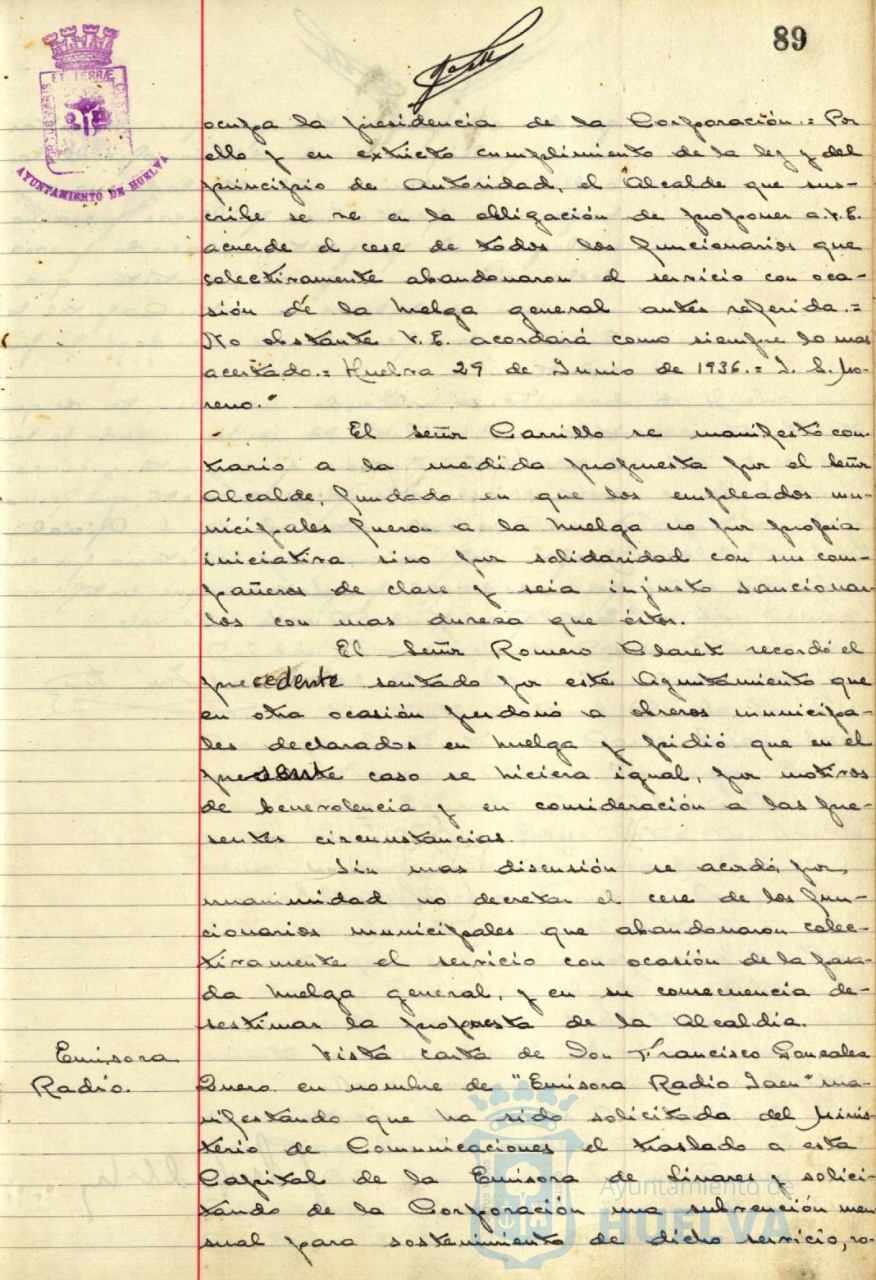 89
PORTUS MARIS ET TERRÆ CUSTODIA
AYUNTAMIENTO DE HUELVA
ocupa la presidencia de la Corporación.= Por
ello y en extricto cumplimiento de la ley y del
principio de Autoridad, el Alcalde que sus-
cribe se ve en la obligación de proponer a V.E.
acuerde el cese de todos los funcionarios que
colectivamente abandonaron el servicio con oca-
sión de la huelga general antes referida.=
No obstante V.E. acordará como siempre lo mas
acertado.= Huelva 29 de Junio de 1936.= J. S. Mo-
reno."
El Señor Carrillo se manifestó con-
trario a la medida propuesta por el Señor
Alcalde, fundado en que los empleados mu-
nicipales fueron a la huelga no por propia
iniciativa sino por solidaridad con sus com-
pañeros de clase y seia injusto sancionar-
los con mas dureza que éstos.
El Señor Romero Claret recordó el
precedente sentado por este Ayuntamiento que
en otra ocasión perdonó a obreros municipa-
les declarados en huelga y pidió que en el
presente caso se hiciera igual, por motivos
de benevolencia y en consideración a las pre-
sentes circunstancias.
Sin mas discusión se acordó, por
unanimidad no decretar el cese de los fun-
cionarios municipales que abandonaron colec-
tivamente el servicio con ocasión de la pasa-
da huelga general, y en su consecuencia de-
sestimar la propuesta de la Alcaldía.
Emisora
Radio.
Vista carta de Don Francisco Gonzalez
Quero en nombre de "Emisora Radio Jaen" ma-
nifestando que ha sido solicitada del Minis-
terio de Comunicaciones el traslado a esta
Capital de la Emisora de Linares y solici-
tando de la Corporación una subvención men-
sual para sostenimiento de dicho servicio, ro-
Ayuntamiento de
HUELVA